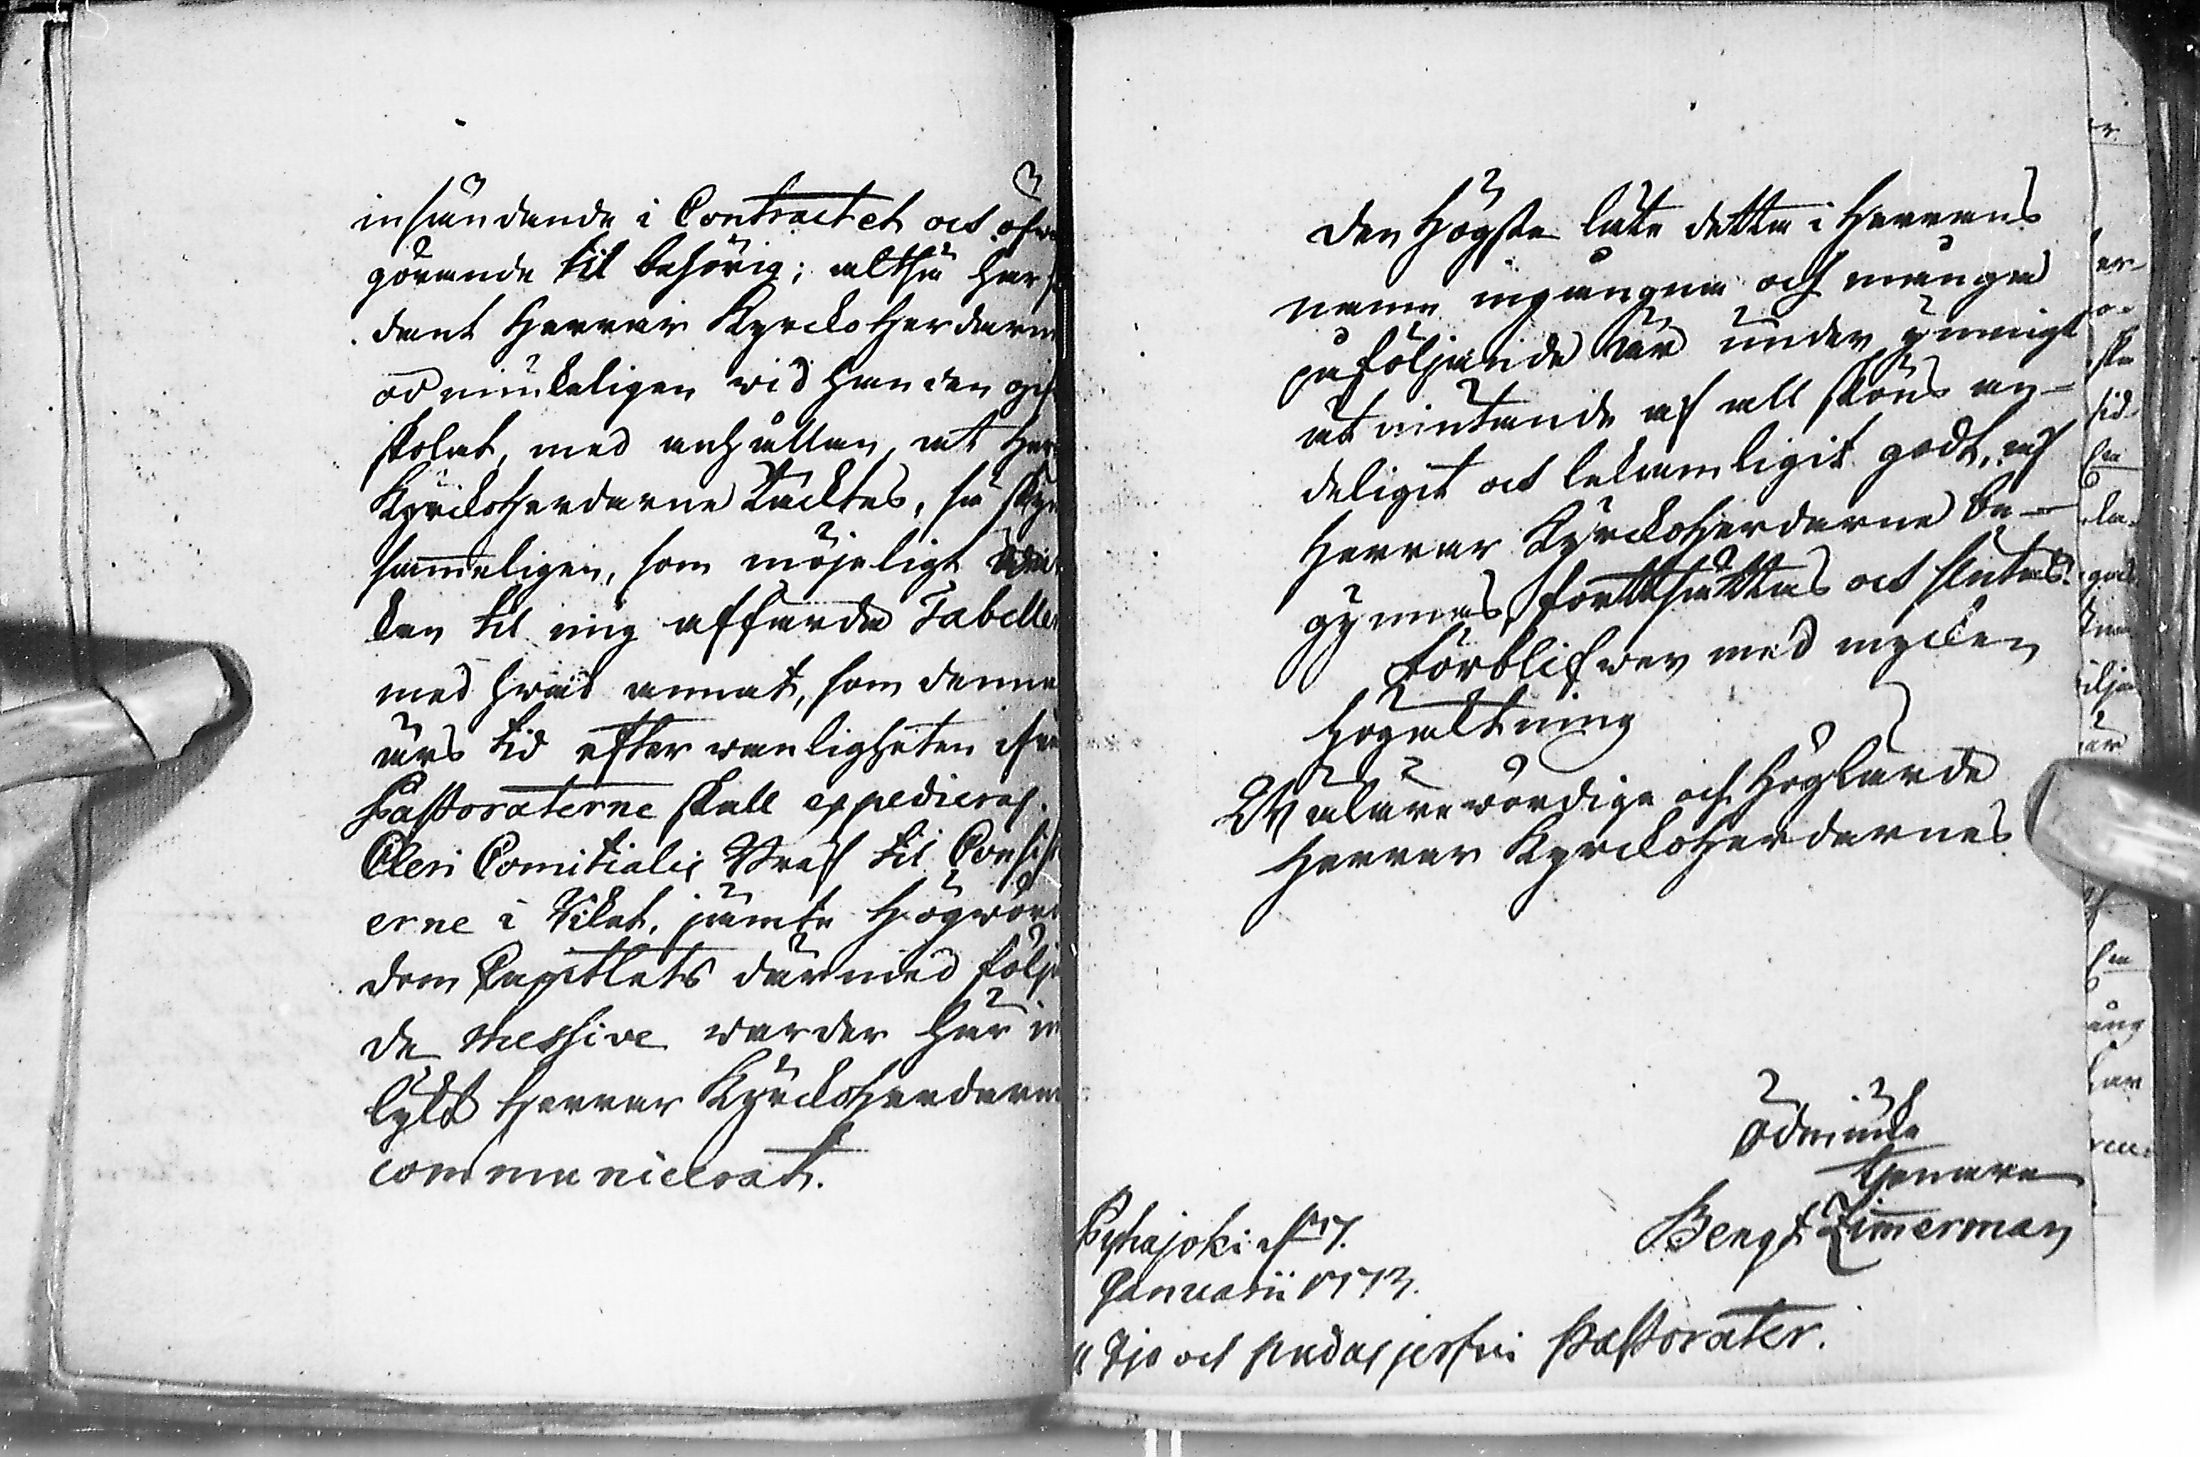 insändande i Contractet och öfwer
görande til behörig; altså har
dant Herrar Kyrckoherdarne
ödmiukeligen wid handen gif
skolat, med anhållan, at Her
Kyrckoherdarne täcktes, så sky
samteligen, som möjeligt
ken til mig affärda Tabeller
med hwad annat, som denne
års tid efter wanligheten ifrån
Pastoraterne skall expedieras.
Cleri Comitialis Bref til Consist
erne i Riket, jämte Högwör
dom Capitlets därmed följ
de Messive warder här in
lykt Herrar Kyrckoherdarne
communicerat.
Den Högste låte detta i Herrans
namn ingångna och många
påföljande åar under ymnigt
åtniutande af all sköns an-
deligit och lekamligit godt, af
Herrar Kyrckoherdarne be-
gynnas, fortsättas och slutas.
Förblifwer med mycken
högacktning
Wälärewördige och Höglärde
Herrar Kyrckoherdarnes
ödmiuke
tjenare
Bengt Zimmerman
Pyhajoki d 17.
Januarii 1773.
Ijo och Pudasjerfwi Pastorater.